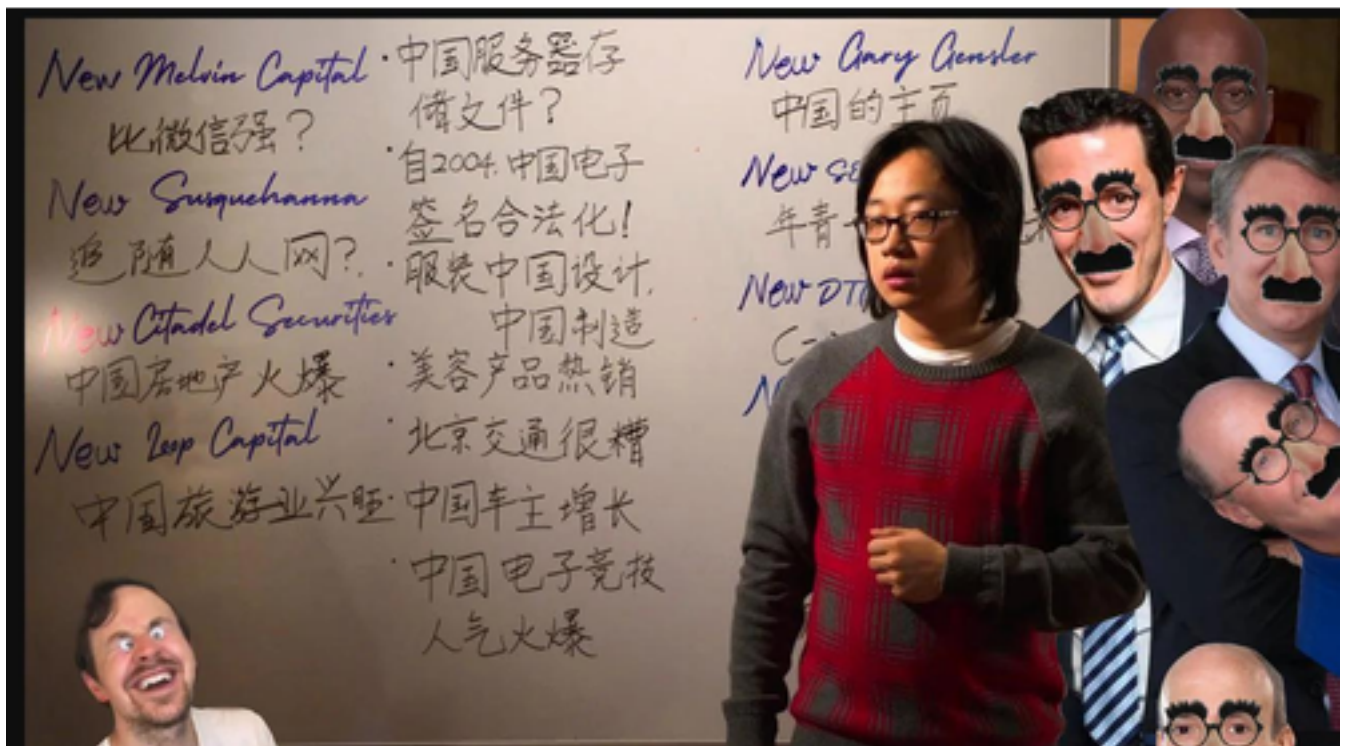 New Melvin Capital
比微信强?
New Susquehanna
追随人人网?
New Citadel Securities
中国房地产火爆
New Loop Capital
中国旅游业兴旺
·中国服务器存
储文件?
·自2004.中国电子
签名合法化!
·服装中国设计,
中国制造
·美容产品热销
·北京交通很糟
·中国车主增长
·中国电子竞技
人气火爆
New Gary Gensler
中国的主页
New SE
年青
New DT
C-
N